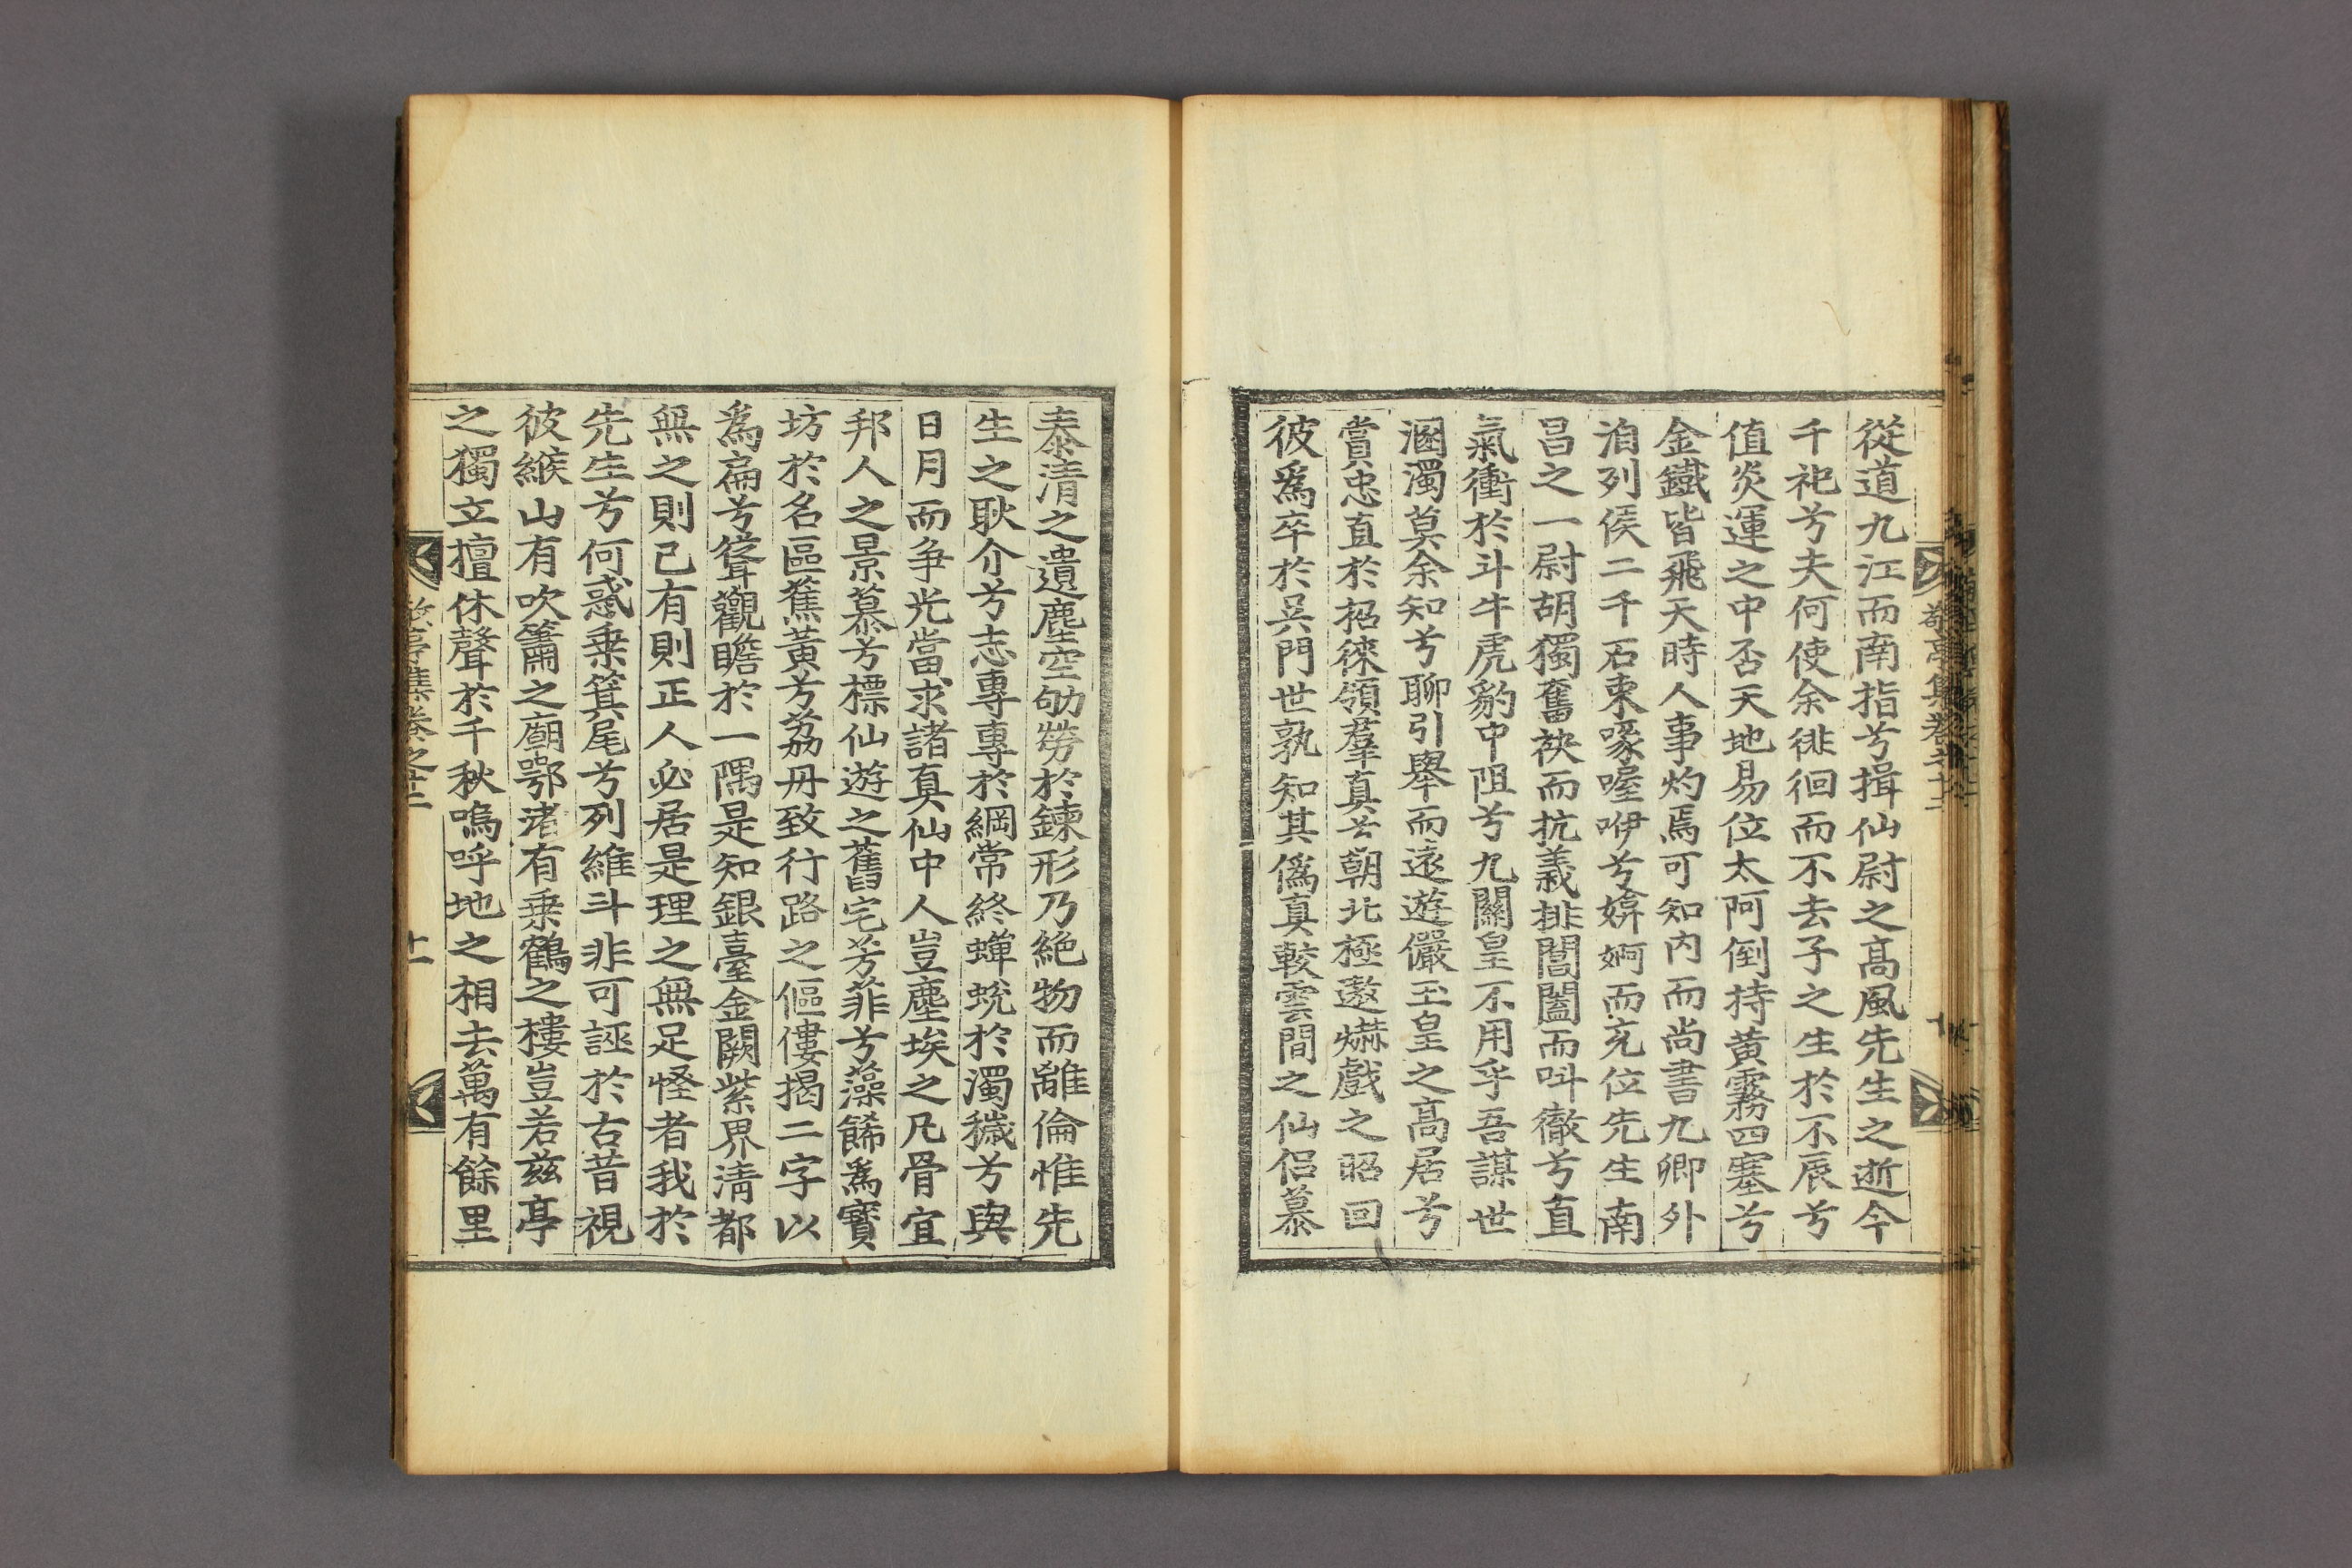 敬亭集卷之十二
從道九江而南指兮揖仙尉之高風先生之逝今
千祀兮夫何使余徘徊而不去子之生於不辰兮
值炎運之中否天地易位太阿倒持黃霧四塞兮
金鐵皆飛天時人事灼焉可知內而尚書九卿外
洎列侯二千石束喙喔咿兮媕婀而充位先生南
昌之一尉胡獨奮袂而抗義排閶闔而叫徹兮直
氣衝於斗牛虎豹中阻兮九關皇不用乎吾謀世
溷濁莫余知兮聊引擧而遠遊儼玉皇之高居兮
賞忠直於招徠領羣真兮朝北極遨嬉戲之昭回
彼爲卒於吳門世孰知其僞真較雲間之仙侶慕
泰淸之遺塵空劬勞於鍊形乃絶物而離倫惟先
生之耿介兮志專專於綱常終蟬蛻於濁穢兮與
日月而爭光當求諸真仙中人豈塵埃之凡骨宜
邦人之景慕兮標仙遊之舊宅芳菲兮藻餙爲寳
坊於名區蕉黃兮荔丹致行路之傴僂揭二字以
爲扁兮聳觀瞻於一隅是知銀臺金闕紫界淸都
無之則已有則正人必居是理之無足怪者我於
先生兮何惑乗箕尾兮列維斗非可誣於古昔視
彼緱山有吹簫之廟鄂渚有乗鶴之樓豈若茲亭
之獨立擅休聲於千秋嗚呼地之相去萬有餘里
敬亭集卷之十二
十一